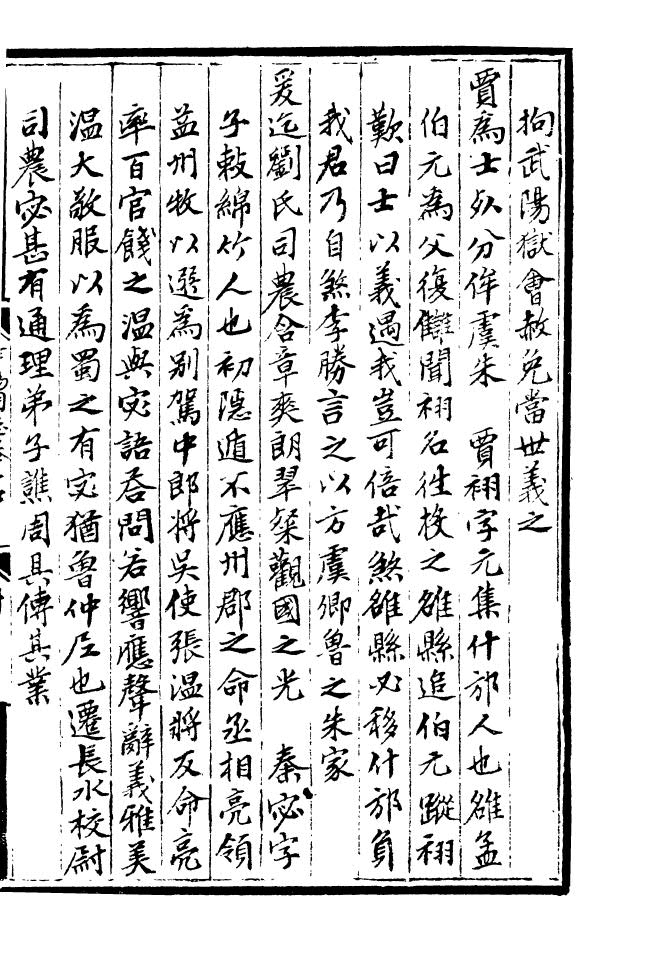 拘武陽獄會赦免當世義之
賈為士死分侔虞朱　賈栩字元集什邡人也雒孟
伯元為父復讎聞栩名徃投之雒縣追伯元蹤栩
歎曰士以義遇我豈可倍哉煞雒縣必移什邡負
我君乃自煞李勝言之以方虞卿魯之朱家
爰迄劉氏司農含章爽朗翠粲觀國之光　秦宓字
子敕綿竹人也初隠遁不應州郡之命丞相亮領
益州牧以選為别駕中郎將吳使張温將反命亮
率百官餞之温與宓語荅問若響應聲辭義雅美
温大敬服以為蜀之有宓猶魯仲尼也遷長水校尉
司農宓甚有通理弟子譙周具傳其業